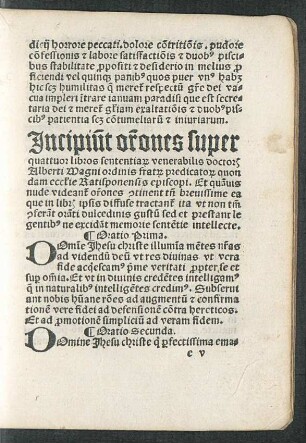 dicij horrore peccati, dolore cõtritiõis, pudore
cõfessionis ⁊ labore satisfactiõis ⁊ duobꝰ piscibus
stabilitate ꝓpositi ⁊ desiderio in melius ꝓ
ficiendi vel quinqꝫ panibꝰ quos puer vnꝰ habꝫ
hic scꝫ humilitas q̃ meret respectũ gr̃e dei va
cua impleri ĩtrare ianuam paradisi que est secre
taria dei ⁊ mereř gliam exaltatiõis ⁊ duobꝰ pis
cibꝰ patientia scꝫ cõtumeliarũ ⁊ iniuriarum.
Incipiũt or̃ones super
quattuor libros sententiarꝝ venerabilis doctorꝭ
Alberti Magni ordinis fratrꝫ predicatoꝝ quon
dam eccl̃ie Ratisponensis episcopi. Et q̃uis
nude videant or̃ones ꝯtinent tñ breuissime ea
que in librꝭ ipsis diffuse tractant ita vt non tm̃
ꝯferãt orãti dulcedinis gustũ sed et prestant le
gentibꝰ ne excidãt memorie sentẽtie intellecte.
¶ Oratio Prima.
DOmĩe Jhesu christe illumĩa mẽtes nr̃as
ad videndũ deũ vt res diuinas vt vera
fide acq̃escam ꝑme veritati ꝓpter, se et
sup om̃ia. Et vt in diuinis credẽtes intelligam
q̃ in naturalibꝰ intelligẽtes credimꝰ. Subseruiant
nobis hũane rões ad augmentũ ⁊ confirma
tionẽ vere fidei ad defensionẽ cõtra hereticos.
Et ad ꝓmotionẽ simpliciũ ad veram fidem.
¶ Oratio Secunda.
DOmine Jhesu christe q̃ ꝑfectissima ema⸗
c v